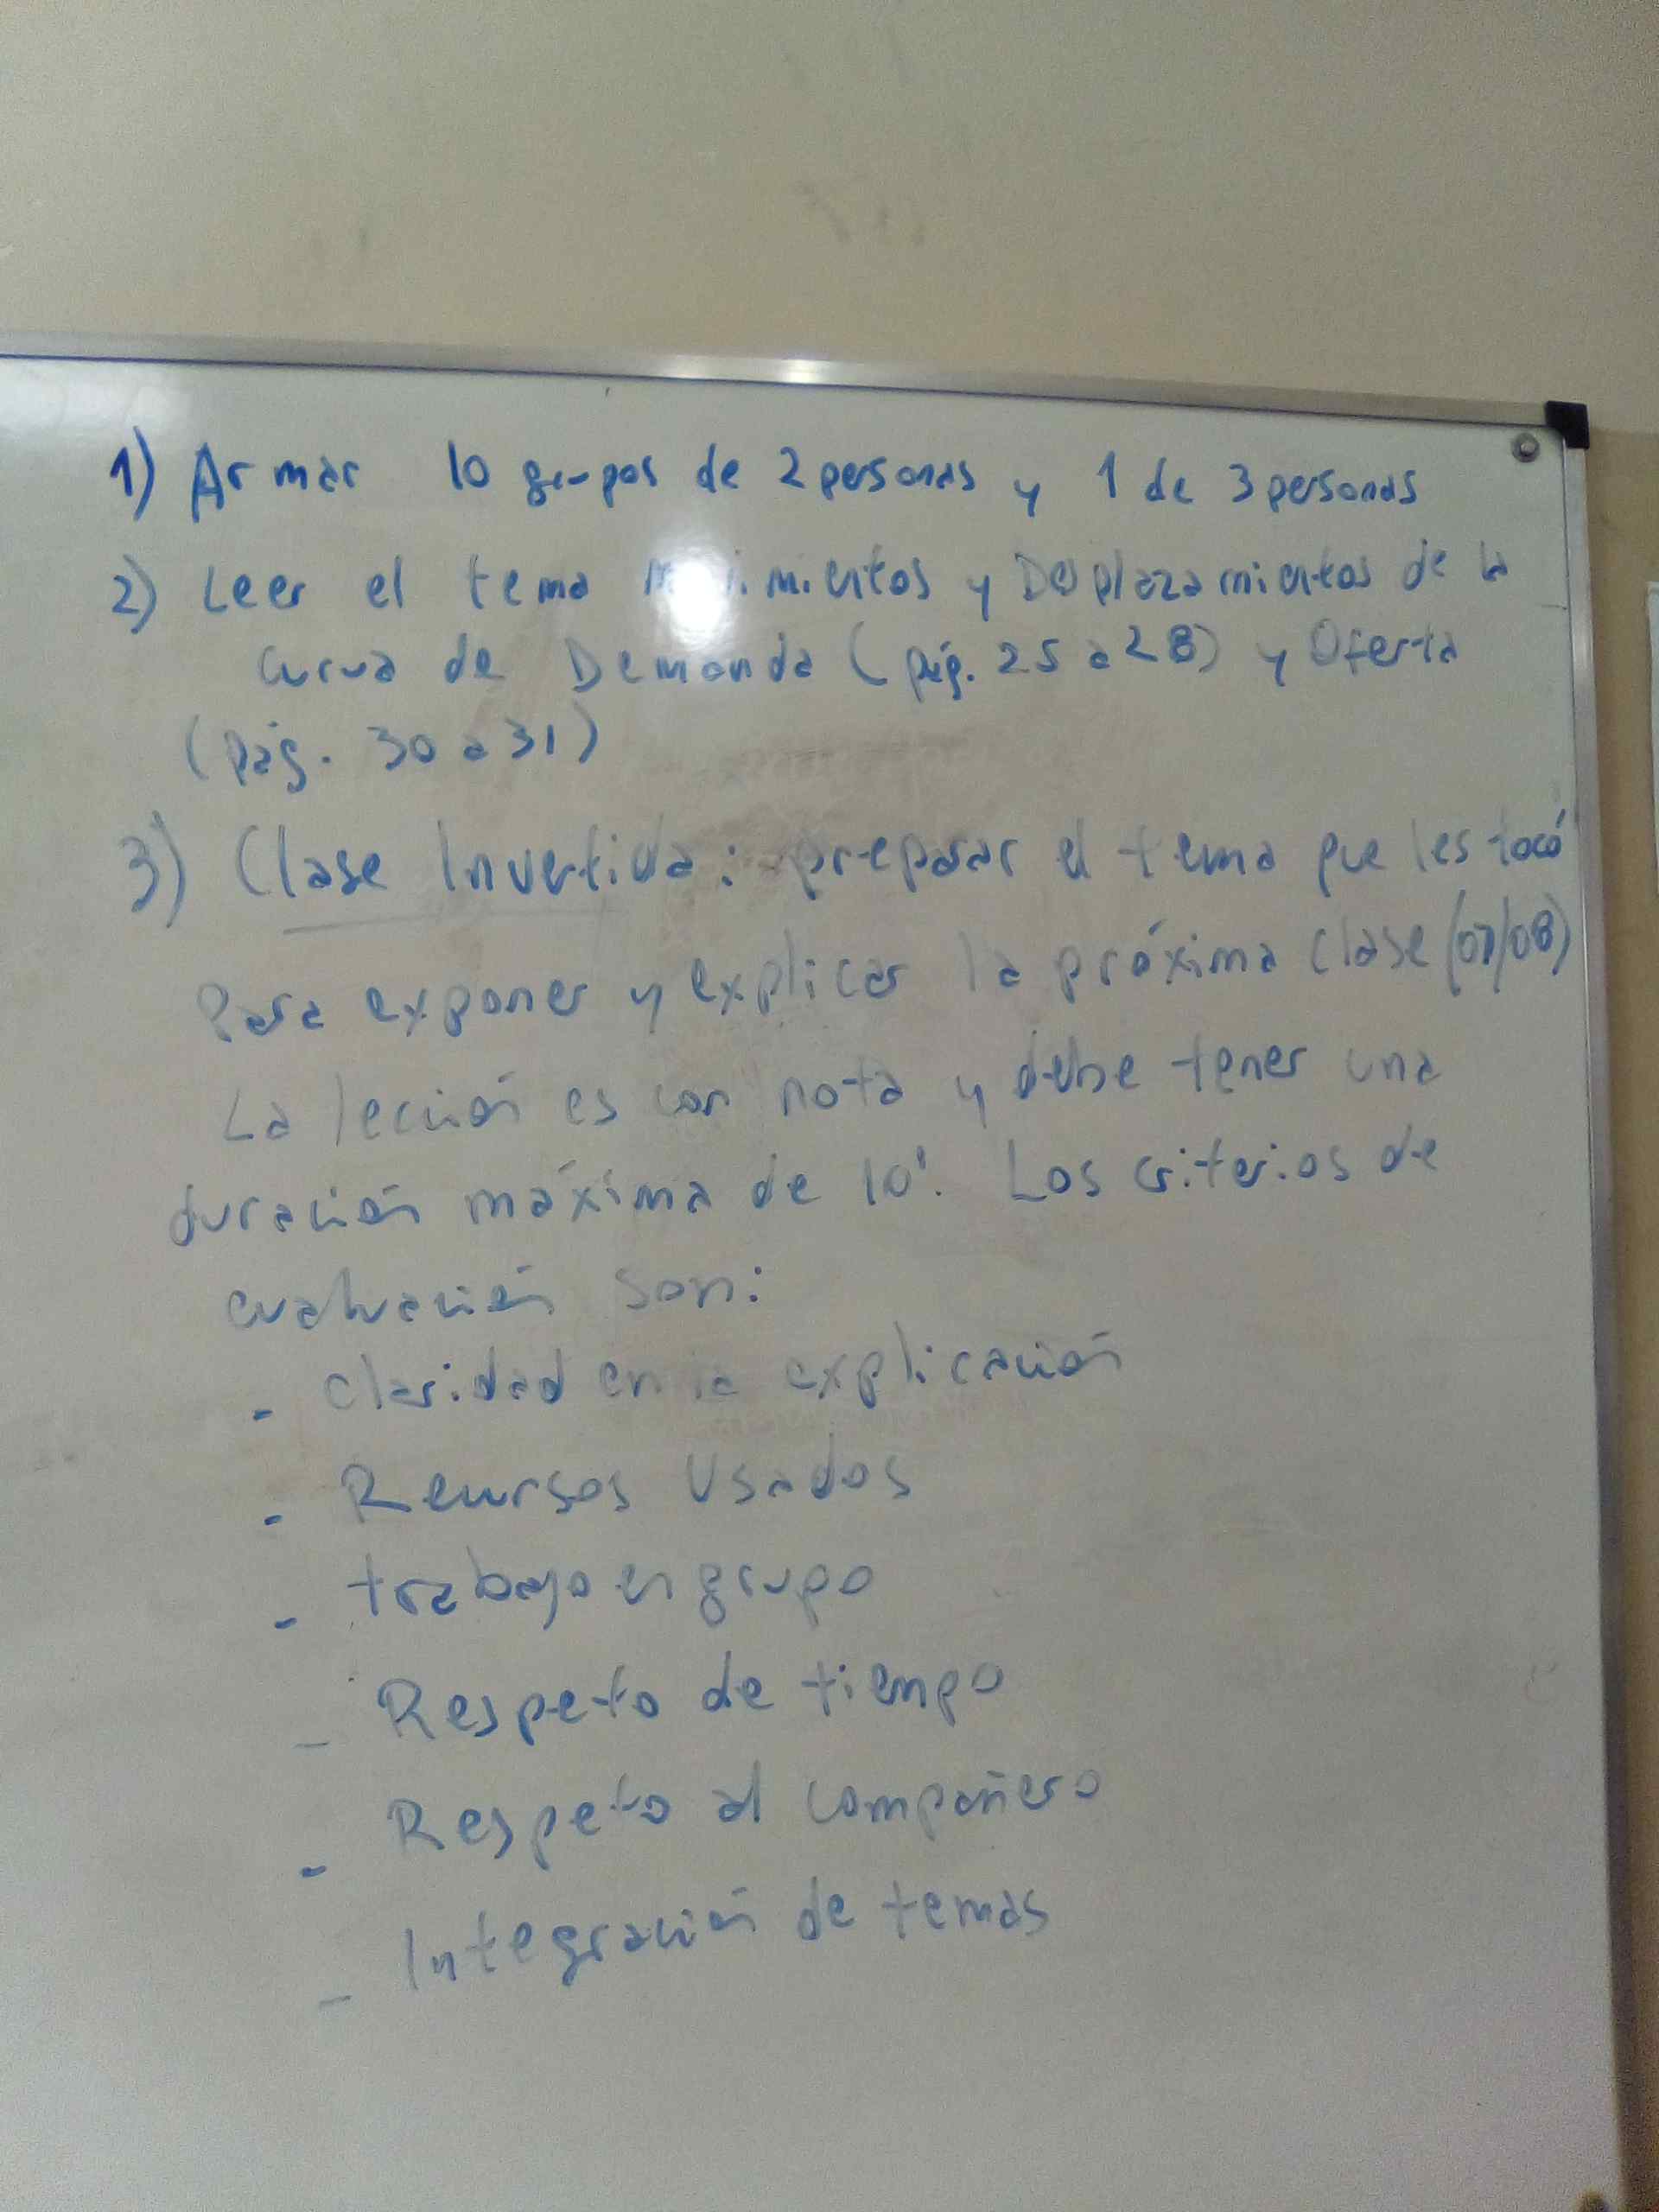 1) Armar 10 grupos de 2 personas y 1 de 3 personas
2) Leer el tema Movimientos y Desplazamientos de la
curva de Demanda (pág. 25 a 28) y Oferta
(pág. 30 a 31)
3) Clase Invertida: preparar el tema que les tocó
para exponer y explicar la próxima clase (07/08)
La lección es con nota y debe tener una
duración máxima de 10'. Los criterios de
evaluación son:
- Claridad en la explicación
- Recursos Usados
- trabajo en grupo
- Respeto de tiempo
- Respeto al compañero
- Integración de temas